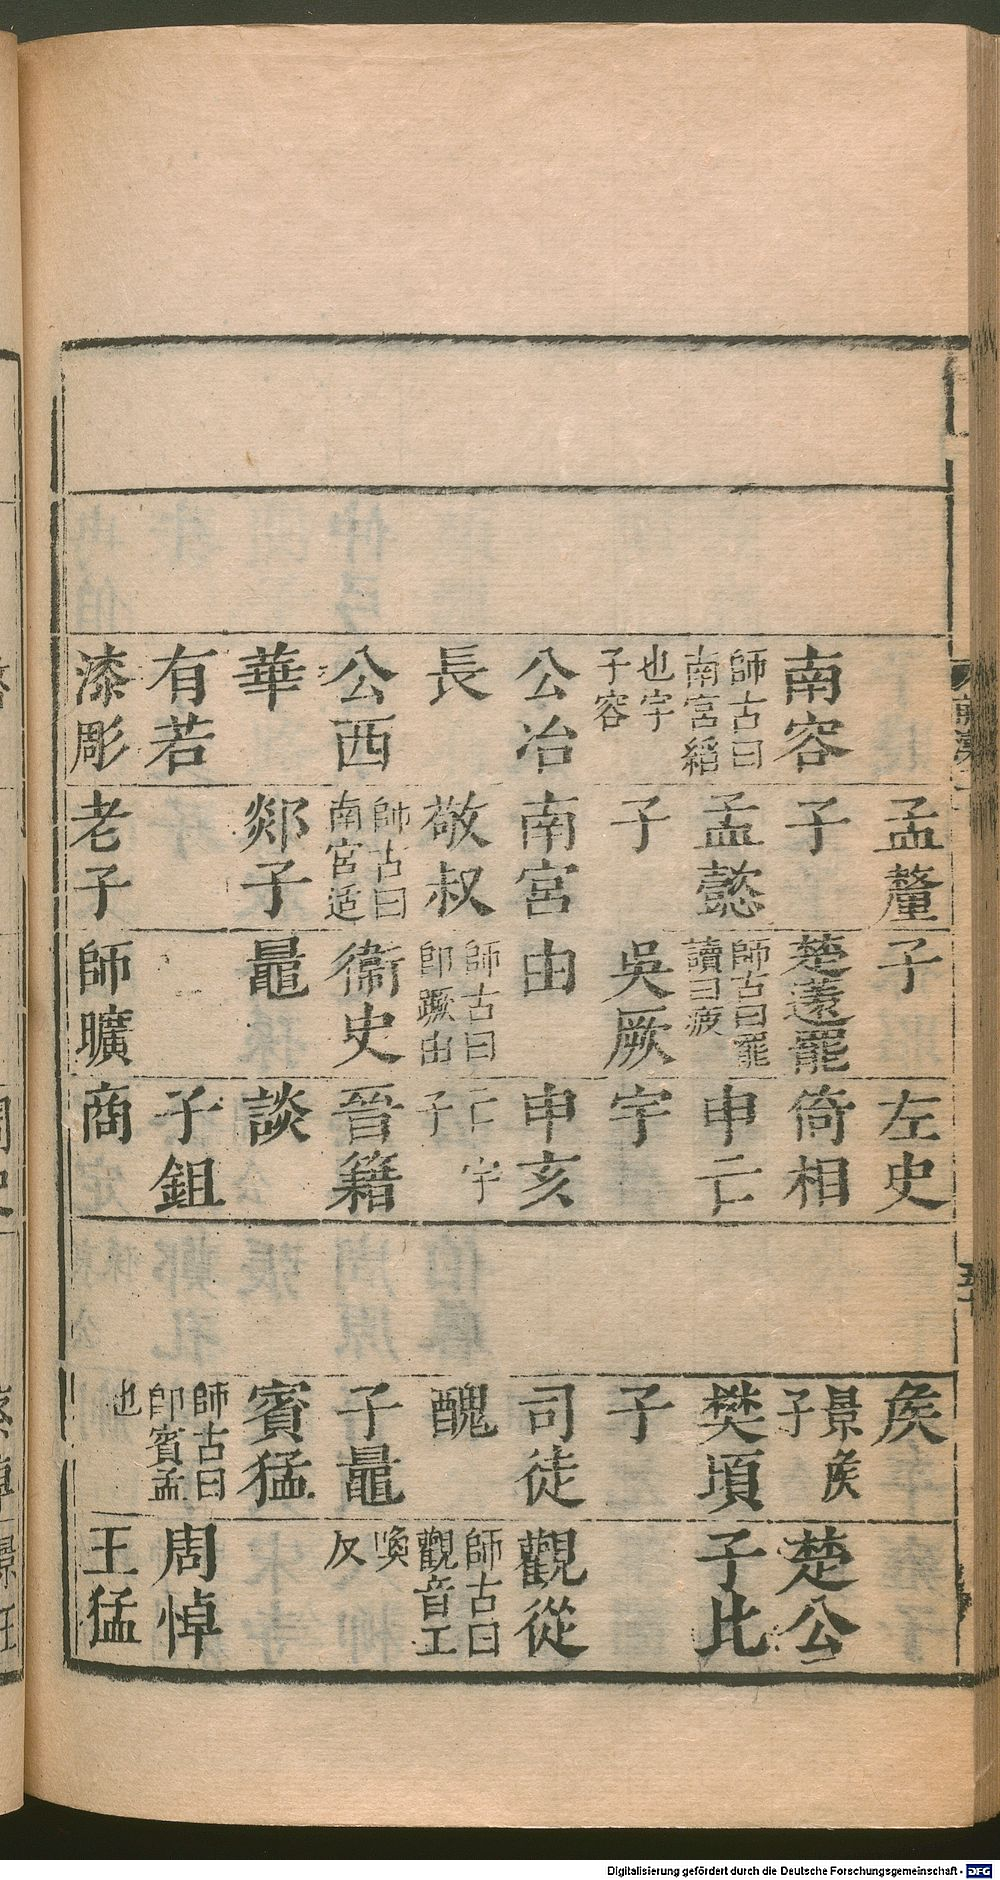 南容
師古曰
南宮縚
也字
子容
公冶
長
公西
華
有若
漆彫
孟釐
子
孟懿
子
南宮
敬叔
師古曰
南宮适
郯子
老子
子
楚薳罷
師古曰罷
讀曰疲
吳厥
由
師古曰
即蹶由
衞史
鼂
師曠
左史
倚相
申亡
宇
申亥
亡宇
子
晉籍
談
子鉏
商
矦
景矦
子
樊頃
子
司徒
醜
子鼂
賓猛
師古曰
即賓孟
也
楚公
子比
觀從
師古曰
觀音工
喚
反
周悼
王猛
Digitalisierung gefördert durch die Deutsche Forschungsgemeinschaft - DFG